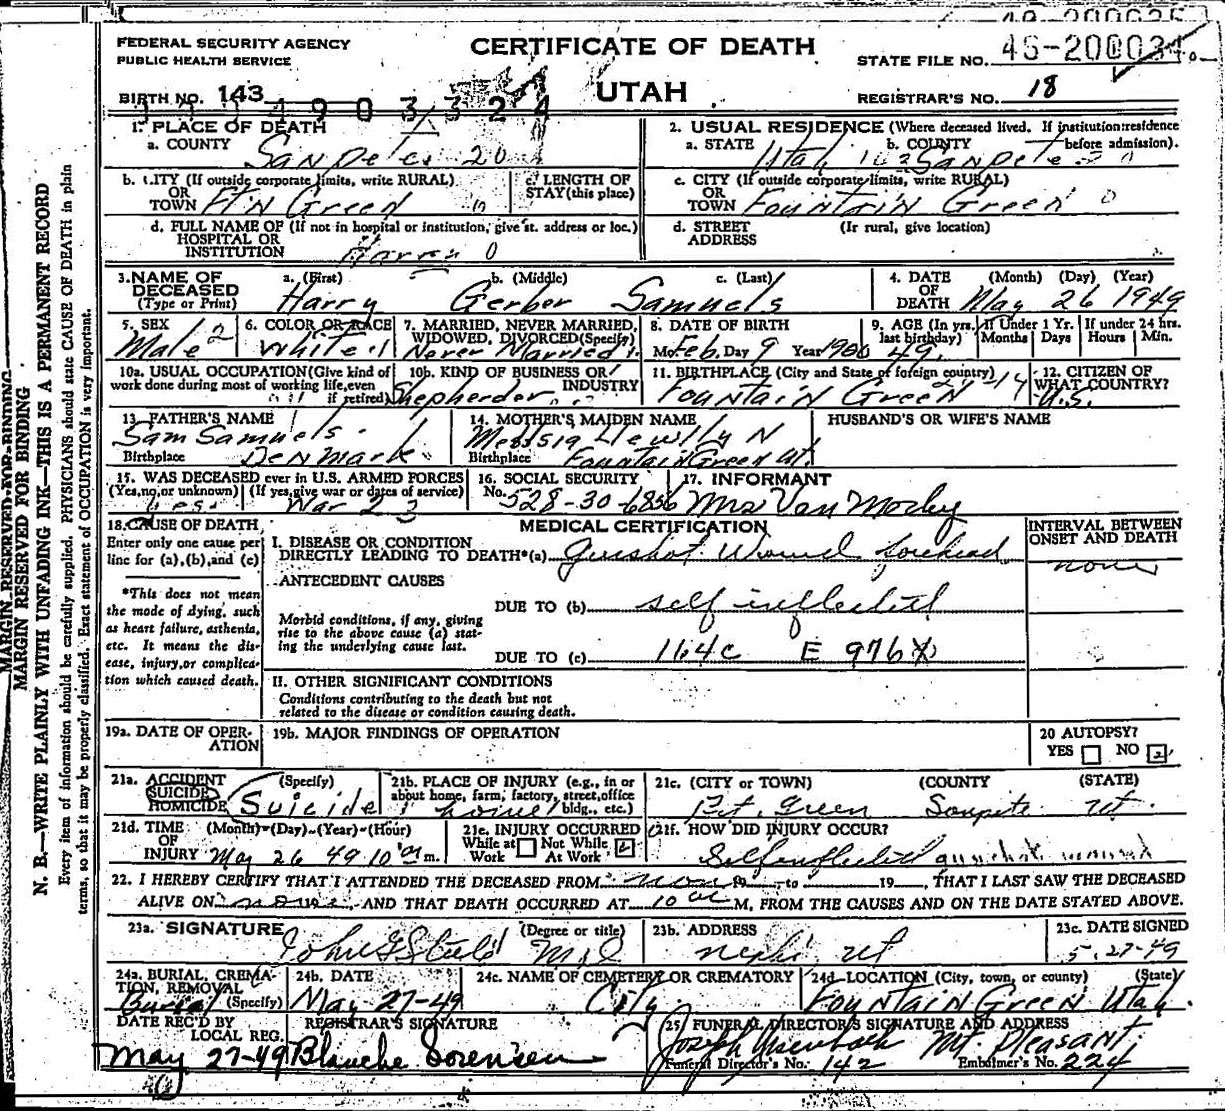 FEDERAL SECURITY AGENCY
PUBLIC HEALTH SERVICE
CERTIFICATE OF DEATH
UTAH
STATE FILE NO.
BIRTH NO. 143
REGISTRAR'S NO. 18
1. PLACE OF DEATH
a. COUNTY Sanpete 20
2. USUAL RESIDENCE (Where deceased lived. If institution: residence before admission).
a. STATE Utah b. COUNTY Sanpete
b. CITY (If outside corporate limits, write RURAL) OR TOWN FTN Green
c. LENGTH OF STAY (this place)
c. CITY (If outside corporate limits, write RURAL) OR TOWN Fountain Green
d. FULL NAME OF (If not in hospital or institution, give st. address or loc.) HOSPITAL OR INSTITUTION
d. STREET ADDRESS (If rural, give location)
3. NAME OF DECEASED (Type or Print) a. (First) Harry b. (Middle) Gerber c. (Last) Samuels
4. DATE OF DEATH (Month) (Day) (Year) May 26 1949
5. SEX Male
6. COLOR OR RACE White
7. MARRIED, NEVER MARRIED, WIDOWED, DIVORCED (Specify) Never Married
8. DATE OF BIRTH Mo. Feb. Day 9 Year
9. AGE (In yrs. last birthday) 49
If Under 1 Yr. Months Days
If under 24 hrs. Hours Min.
10a. USUAL OCCUPATION (Give kind of work done during most of working life, even if retired)
10b. KIND OF BUSINESS OR INDUSTRY Shepherder
11. BIRTHPLACE (City and State or foreign country) Fountain Green
12. CITIZEN OF WHAT COUNTRY? U.S.
13. FATHER'S NAME Sam Samuels
Birthplace Denmark
14. MOTHER'S MAIDEN NAME
Birthplace Fountain Green Ut.
HUSBAND'S OR WIFE'S NAME
15. WAS DECEASED ever in U.S. ARMED FORCES (Yes, no, or unknown) yes (If yes, give war or dates of service) War 2
16. SOCIAL SECURITY No. 528-30-6836
17. INFORMANT Mrs Van Morley
18. CAUSE OF DEATH
Enter only one cause per line for (a), (b), and (c)
*This does not mean the mode of dying, such as heart failure, asthenia, etc. It means the disease, injury, or complication which caused death.
MEDICAL CERTIFICATION
INTERVAL BETWEEN ONSET AND DEATH
I. DISEASE OR CONDITION DIRECTLY LEADING TO DEATH*(a) Gunshot Wound forehead none
ANTECEDENT CAUSES
Morbid conditions, if any, giving rise to the above cause (a) stating the underlying cause last.
DUE TO (b) self inflicted
DUE TO (c) 164c E 976X
II. OTHER SIGNIFICANT CONDITIONS
Conditions contributing to the death but not related to the disease or condition causing death.
19a. DATE OF OPERATION
19b. MAJOR FINDINGS OF OPERATION
20 AUTOPSY? YES NO
21a. ACCIDENT SUICIDE HOMICIDE (Specify) Suicide
21b. PLACE OF INJURY (e.g., in or about home, farm, factory, street, office bldg., etc.) home
21c. (CITY or TOWN) (COUNTY) (STATE) Green Sanpete Ut.
21d. TIME OF INJURY (Month)-(Day)-(Year)-(Hour) May 26 49 10 a m.
21e. INJURY OCCURRED While at Work Not While At Work
21f. HOW DID INJURY OCCUR? Self inflicted gunshot wound
22. I HEREBY CERTIFY THAT I ATTENDED THE DECEASED FROM none 19 to 19 , THAT I LAST SAW THE DECEASED
ALIVE ON none, AND THAT DEATH OCCURRED AT 10 a M, FROM THE CAUSES AND ON THE DATE STATED ABOVE.
23a. SIGNATURE (Degree or title) M.D
23b. ADDRESS Nephi Ut
23c. DATE SIGNED 5-27-49
24a. BURIAL, CREMATION, REMOVAL (Specify) Burial
24b. DATE May-27-49
24c. NAME OF CEMETERY OR CREMATORY City
24d. LOCATION (City, town, or county) (State) Fountain Green, Utah.
DATE REC'D BY LOCAL REG. May 27-49
REGISTRAR'S SIGNATURE Blanche Sorensen
25. FUNERAL DIRECTOR'S SIGNATURE AND ADDRESS Joseph Mt. Pleasant
Funeral Director's No. 142 Embalmer's No. 224
MARGIN RESERVED FOR BINDING
MARGIN RESERVED FOR BINDING
N. B.—WRITE PLAINLY WITH UNFADING INK—THIS IS A PERMANENT RECORD
Every item of information should be carefully supplied. PHYSICIANS should state CAUSE OF DEATH in plain
terms, so that it may be properly classified. Exact statement of OCCUPATION is very important.